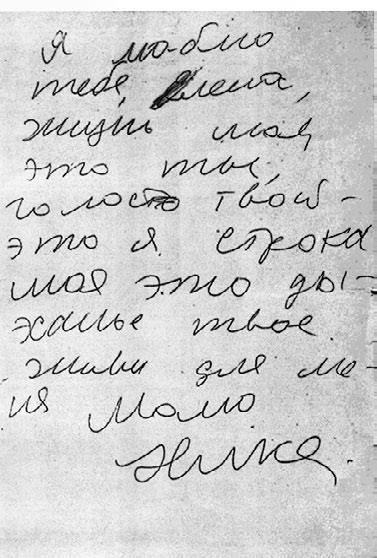 Я люблю
тебя, Алена,
жизнь моя,
это ты,
голос твой -
это я строка
моя это ды-
ханье твое
живи для ме-
ня Мамо
Ника.